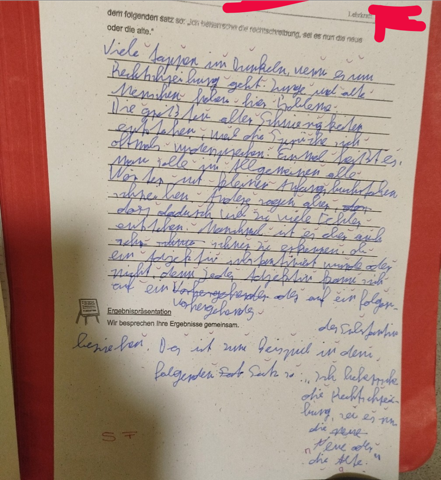 Lehrbrief
dem folgenden satz so: „Ich beherrsche die rechtschreibung, sei es nun die neue
oder die alte."
Viele tappen im Dunkeln, wenn es um
Rechtschreibung geht. Junge und alte
Menschen haben hier Probleme.
Die größten aller Schwierigkeiten
entstehen, weil die Sprüche sich
oftmals widersprechen. Einmal heißt es,
man solle im Allgemeinen alle
Wörter mit kleinen Anfangsbuchstaben
schreiben. Andere sagen aber,
dass dadurch viel zu viele Fehler
entstehen. Manchmal ist es aber auch
sehr schwer zu erkennen, ob
ein Adjektiv substantiviert wurde oder
nicht, denn jedes Adjektiv kann sich
auf ein Vorhergehendes oder auf ein folgen-
vorhergehendes
des Substantiv
Ergebnispräsentation
Wir besprechen Ihre Ergebnisse gemeinsam.
beziehen. Das ist zum Beispiel in dem
folgenden Satz so: „Ich beherrsche
die Rechtschrei-
bung, sei es nun
die neue
Neue oder
die Alte."